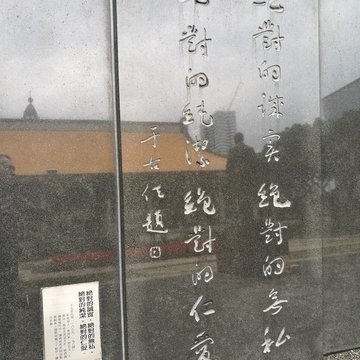 絕對的誠實 絕對的無私
絕對的純潔 絕對的仁愛
于右任題
絕對的誠實・絕對的無私
絕對的純潔・絕對的仁愛